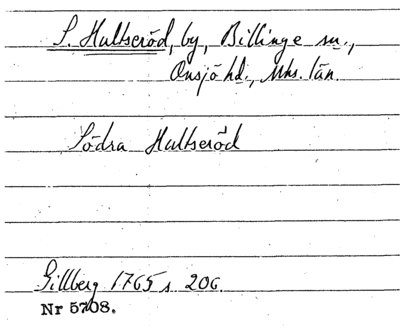 S. Hultseröd, by, Billinge sn.,
Onsjö hd., Mhs. län.
Södra Hultseröd
Gillberg 1765 s 206.
Nr 5708.